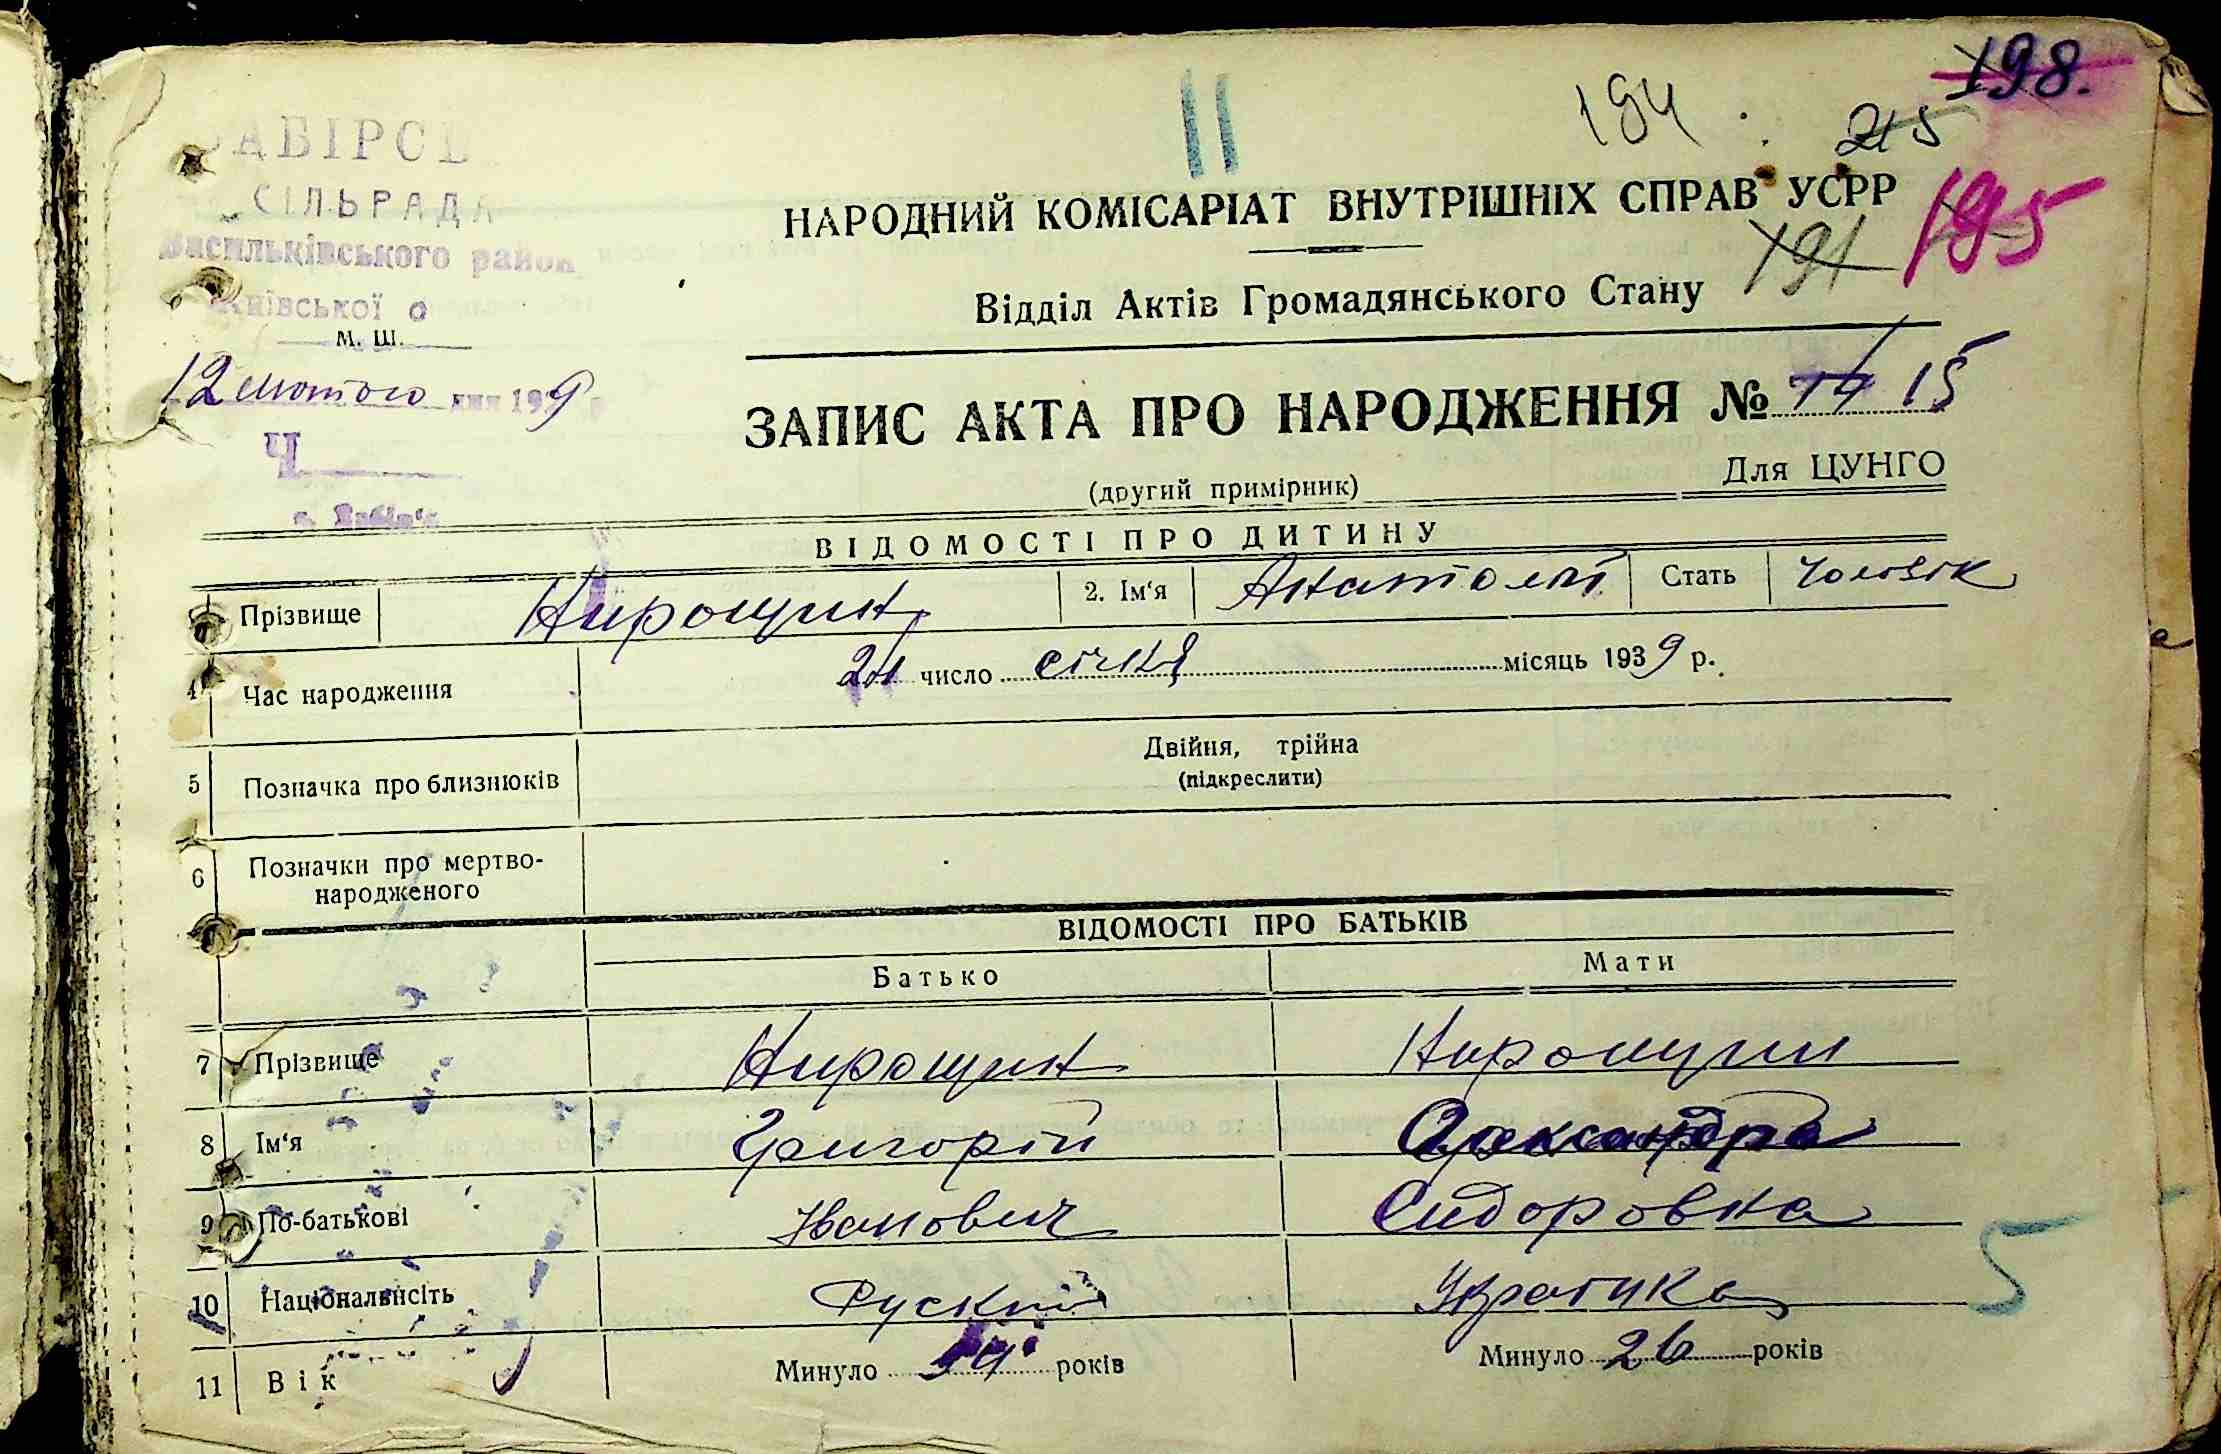 11
194
198.
215
АБІРС
СІЛЬРАДА
Васильківського район
Київської о
М. Ш.
12 лютого дня 1939 р
Ч
НАРОДНИЙ КОМІСАРІАТ ВНУТРІШНІХ СПРАВ УСРР
191 195
Відділ Актів Громадянського Стану
ЗАПИС АКТА ПРО НАРОДЖЕННЯ № 14 15
(другий примірник)
Для ЦУНГО
ВІДОМОСТІ ПРО ДИТИНУ
Прізвище Нирощин 2. Ім'я Анатолій Стать чоловік
4 Час народження 21 число січня місяць 1939 р.
5 Позначка про близнюків Двійня, трійня
(підкреслити)
6 Позначки про мертво-
народженого
ВІДОМОСТІ ПРО БАТЬКІВ
Батько Мати
7 Прізвище Нирощин Нирощин
8 Ім'я Григорій Олександра
9 По-батькові Іванович Сидоровна
10 Національність Руский
5
11 Вік Минуло років Минуло 26 років